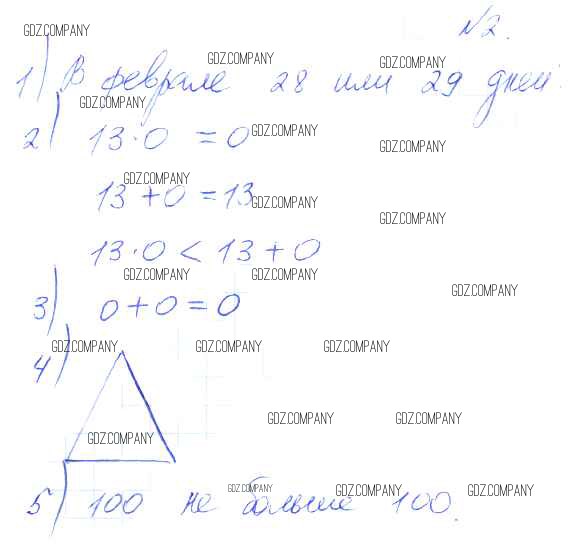 GDZ.COMPANY
№2.
GDZ.COMPANY GDZ.COMPANY
1) В феврале 28 или 29 дней.
GDZ.COMPANY
2) 13·0 = 0 GDZ.COMPANY GDZ.COMPANY
GDZ.COMPANY
13 + 0 = 13 GDZ.COMPANY
GDZ.COMPANY
13·0 < 13 + 0
GDZ.COMPANY GDZ.COMPANY
GDZ.COMPANY
3) 0 + 0 = 0
GDZ.COMPANY GDZ.COMPANY GDZ.COMPANY
4)
GDZ.COMPANY GDZ.COMPANY
GDZ.COMPANY
GDZ.COMPANY GDZ.COMPANY GDZ.COMPANY
5) 100 не больше 100.